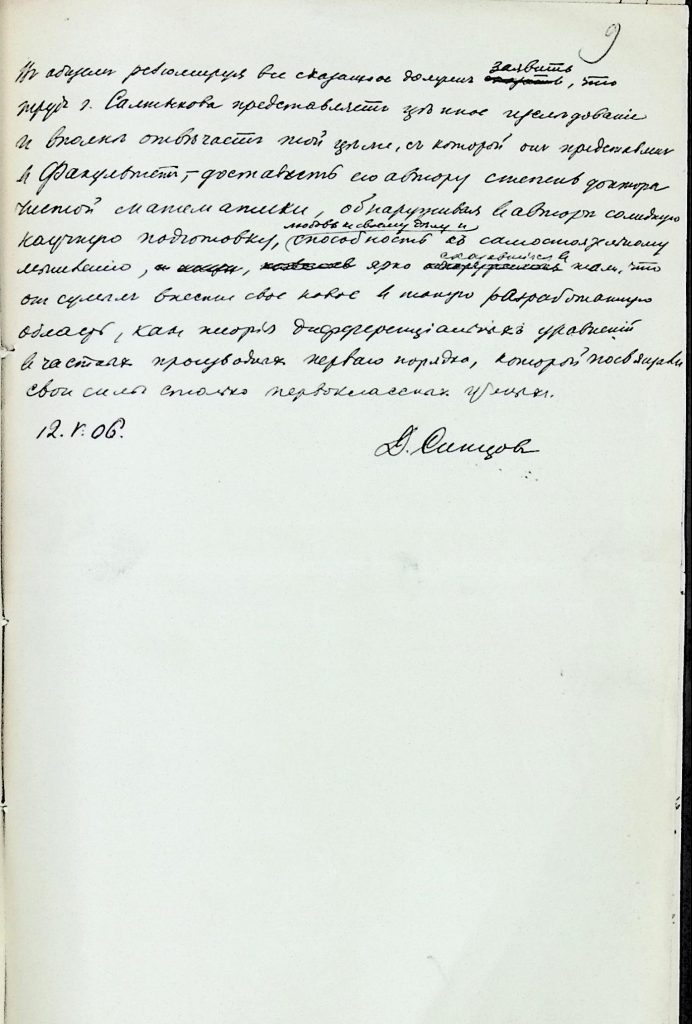 9
Въ общемъ резюмируя все сказанное долженъ заявить, что
трудъ г. Салтыкова представляетъ цѣнное изслѣдованіе
и вполнѣ отвѣчаетъ той цѣли, съ которой онъ представленъ
въ Факультетъ, – доставить его автору степень доктора
чистой математики, обнаруживая въ авторѣ солидную
научную подготовку, любовь къ своему дѣлу и способность къ самостоятельному
мышленію, ярко сказавшійся въ томъ, что
онъ сумелъ внести свое новое въ такую разработанную
область, какъ теорія дифференціальныхъ уравненій
въ частныхъ производныхъ перваго порядка, которой посвящали
свои силы столько первоклассныхъ ученыхъ.
12.V.06.
Д. Синцовъ